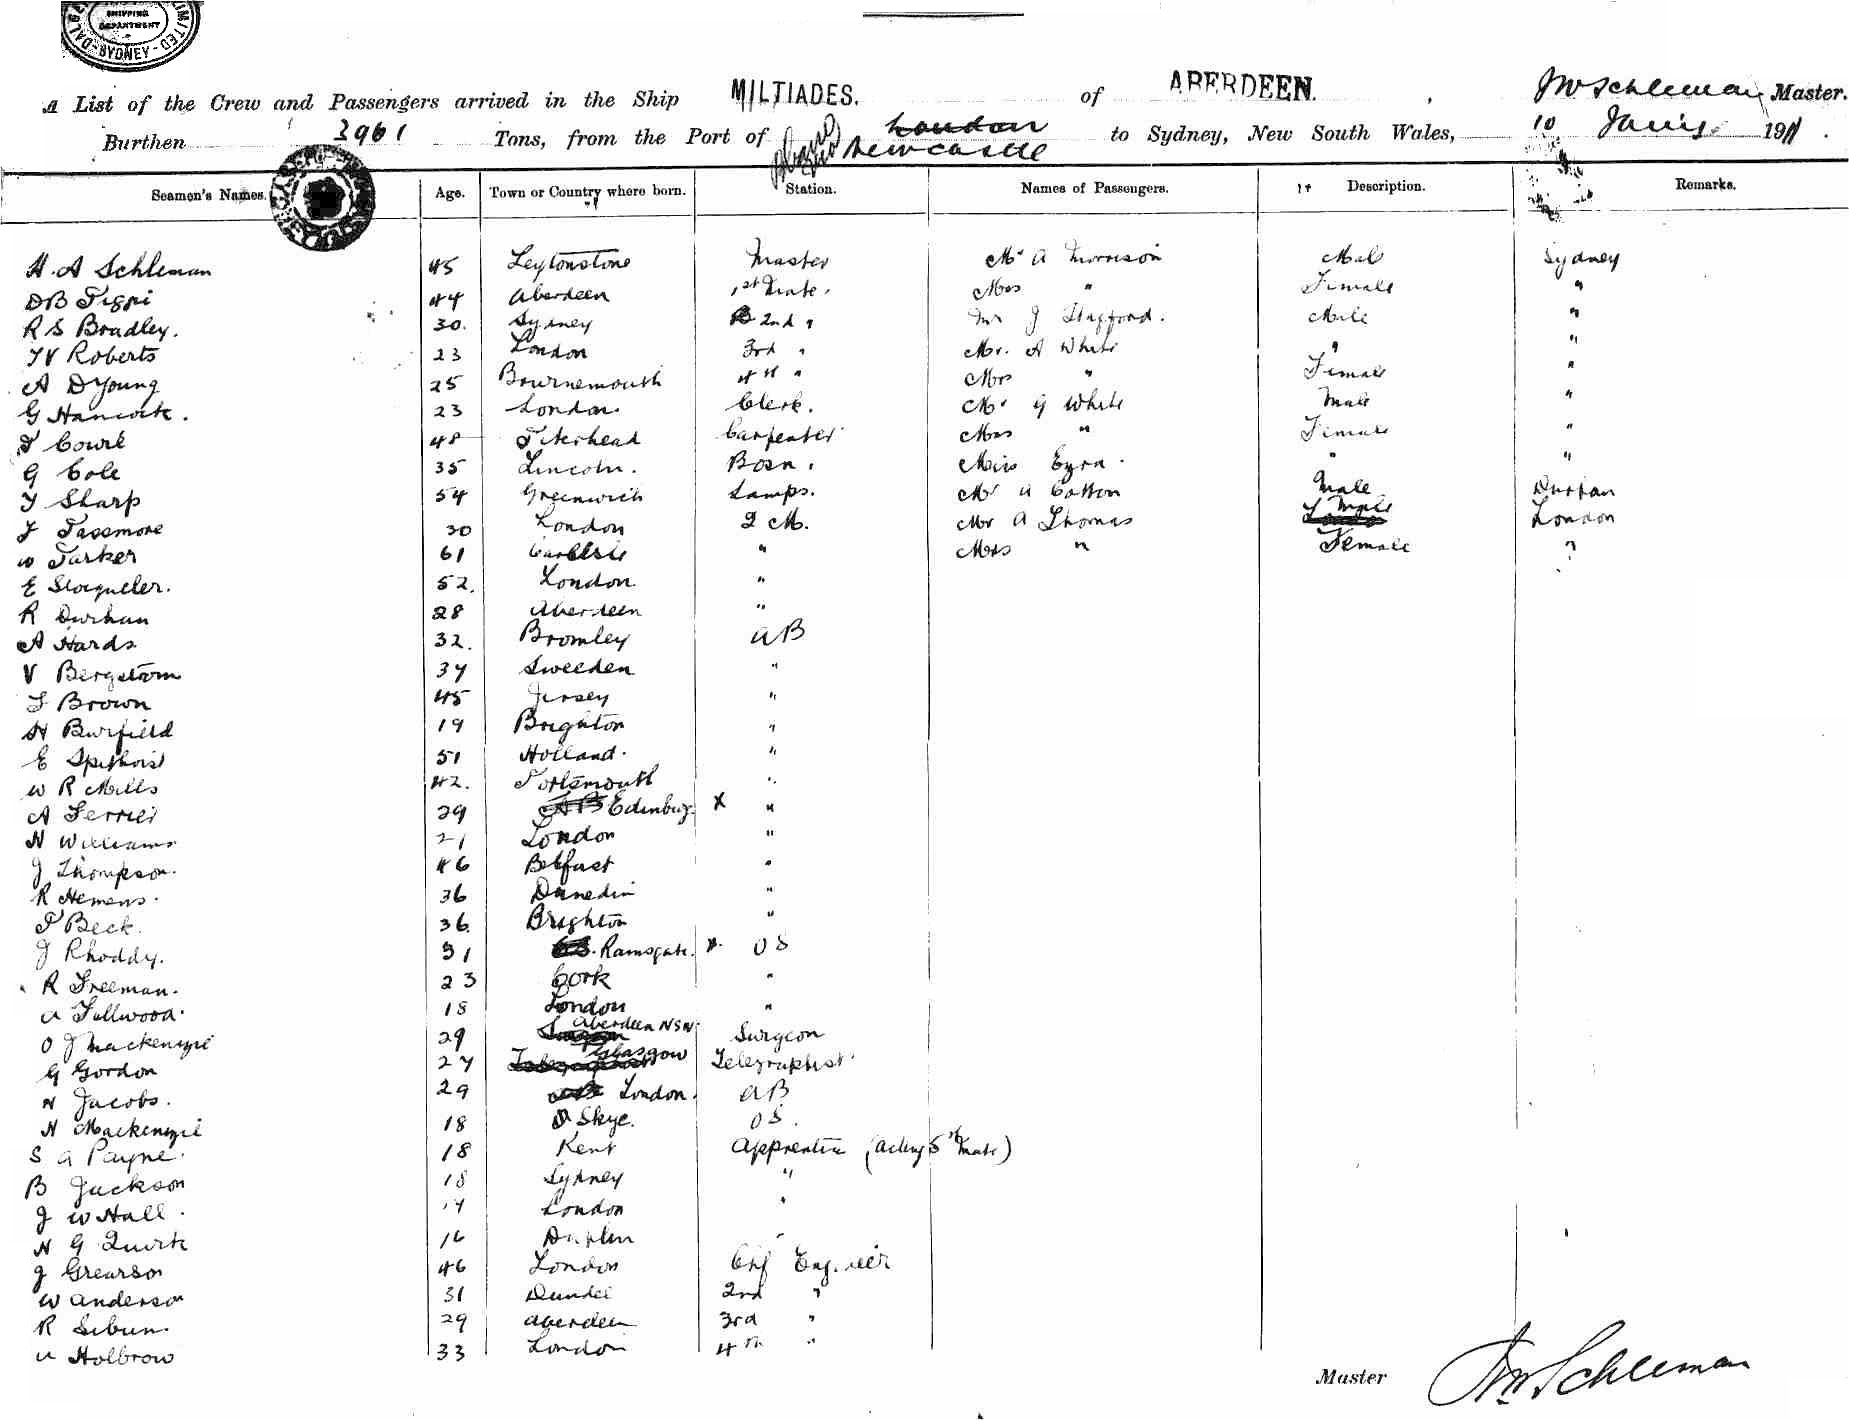 SHIPPING
DEPARTMENT
SYDNEY
LIMITED
A List of the Crew and Passengers arrived in the Ship MILTIADES. of ABERDEEN. Schleman Master.
Burthen 3961 Tons, from the Port of London Newcastle to Sydney, New South Wales, 10 1911.
Seamen's Names. Age. Town or Country where born. Station. Names of Passengers. Description. Remarks.
H. A Schleman 45 Leytonstone Master Mr A Morrison Male Sydney
DB 44 Aberdeen 1st Mate. Mrs " Female "
R S Bradley. 30. Sydney 2nd " Mr J Stafford. Male "
Roberts 23 London 3rd " Mr. A White " "
A D Young 25 Bournemouth 4th " Mrs " Female "
G Hancock. 23 London. Clerk. Mr G White Male "
48 Peterhead Carpenter Mrs " Female "
G Cole 35 Lincoln. Bosn. Miss " "
Sharp 54 Greenwich Lamps. Mr Cotton Male Durban
Passmore 30 London Q M. Mr A Thomas Male London
W Parker 61 " Mrs " Female "
E 52. London "
R Durham 28 Aberdeen "
A Hards 32. Bromley AB
V Bergstrom 37 Sweeden "
Brown 45 Jersey "
H Burfield 19 Brighton "
E 51 Holland. "
W R Mills 42. Portsmouth "
A Ferrier 29 Edinburg. X "
N Williams 21 London "
J Thompson. 46 Belfast "
R Hemens. 36 Dunedin "
P Beck. 36. Brighton "
J Rhoddy. 31 Ramsgate. X. OS
R Freeman. 23 Cork "
A Fullwood. 18 London "
O J Mackenzie 29 Aberdeen NSW Surgeon
G Gordon 27 Glasgow Telegraphist
N Jacobs. 29 London. AB
N Mackenzie 18 Skye. OS.
S A Payne. 18 Kent Apprentice (Acting 5th Mate)
B Jackson 18 Sydney "
J W Hall. 17 London "
N G Quirk 16
J Grearson 46 London Chf Engineer
W Anderson 31 Dundee 2nd "
R 29 Aberdeen 3rd "
Holbrow 33 London 4th "
Master Schleman